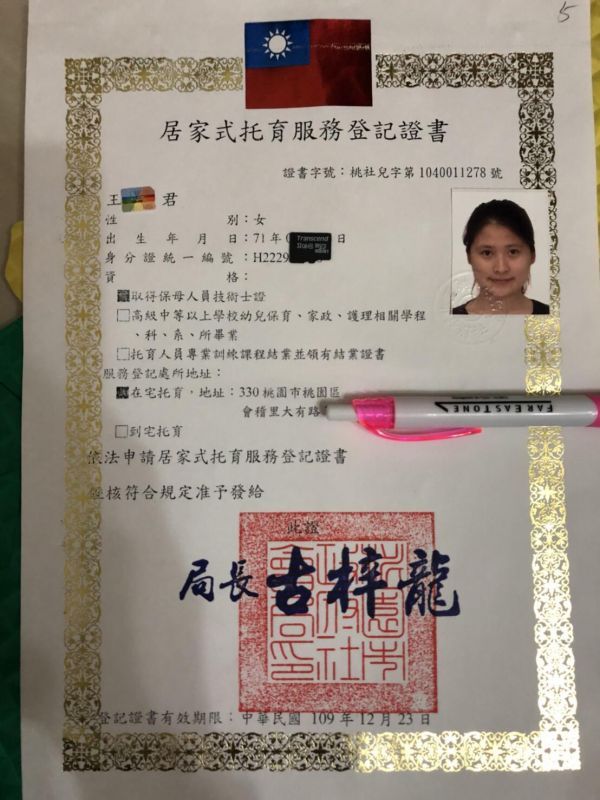 5
居家式托育服務登記證書
證書字號：桃社兒字第 1040011278 號
王 君
性 別：女
出生年月日：71 年 日
身分證統一編號：H2229
資 格：
取得保母人員技術士證
□高級中等以上學校幼兒保育、家政、護理相關學程
、科、系、所畢業
□托育人員專業訓練課程結業並領有結業證書
服務登記處所地址：
在宅托育，地址：330 桃園市桃園區
會稽里大有路
□到宅托育
依法申請居家式托育服務登記證書
經核符合規定准予發給
此證
局長 古梓龍
登記證書有效期限：中華民國 109 年 12 月 23 日
Transcend
FAREASTONE